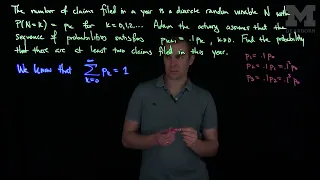 The number of claims filed in a year is a discrete random variable N with
P(N=k) = pₖ for k=0,1,2,... Adam the actuary assumes that the
sequence of probabilities satisfies pₖ₊₁ = .1pₖ, k≥0. Find the probability
that there are at least two claims filed in this year.
We know that ∑ₖ₌₀^∞ pₖ = 1
p₁ = .1p₀
p₂ = .1p₁ = .1²p₀
p₃ = .1p₂ = .1³p₀